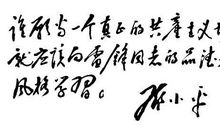 谁愿当一个真正的共产主义
就应该向雷锋同志的品德
风格学习。
邓小平